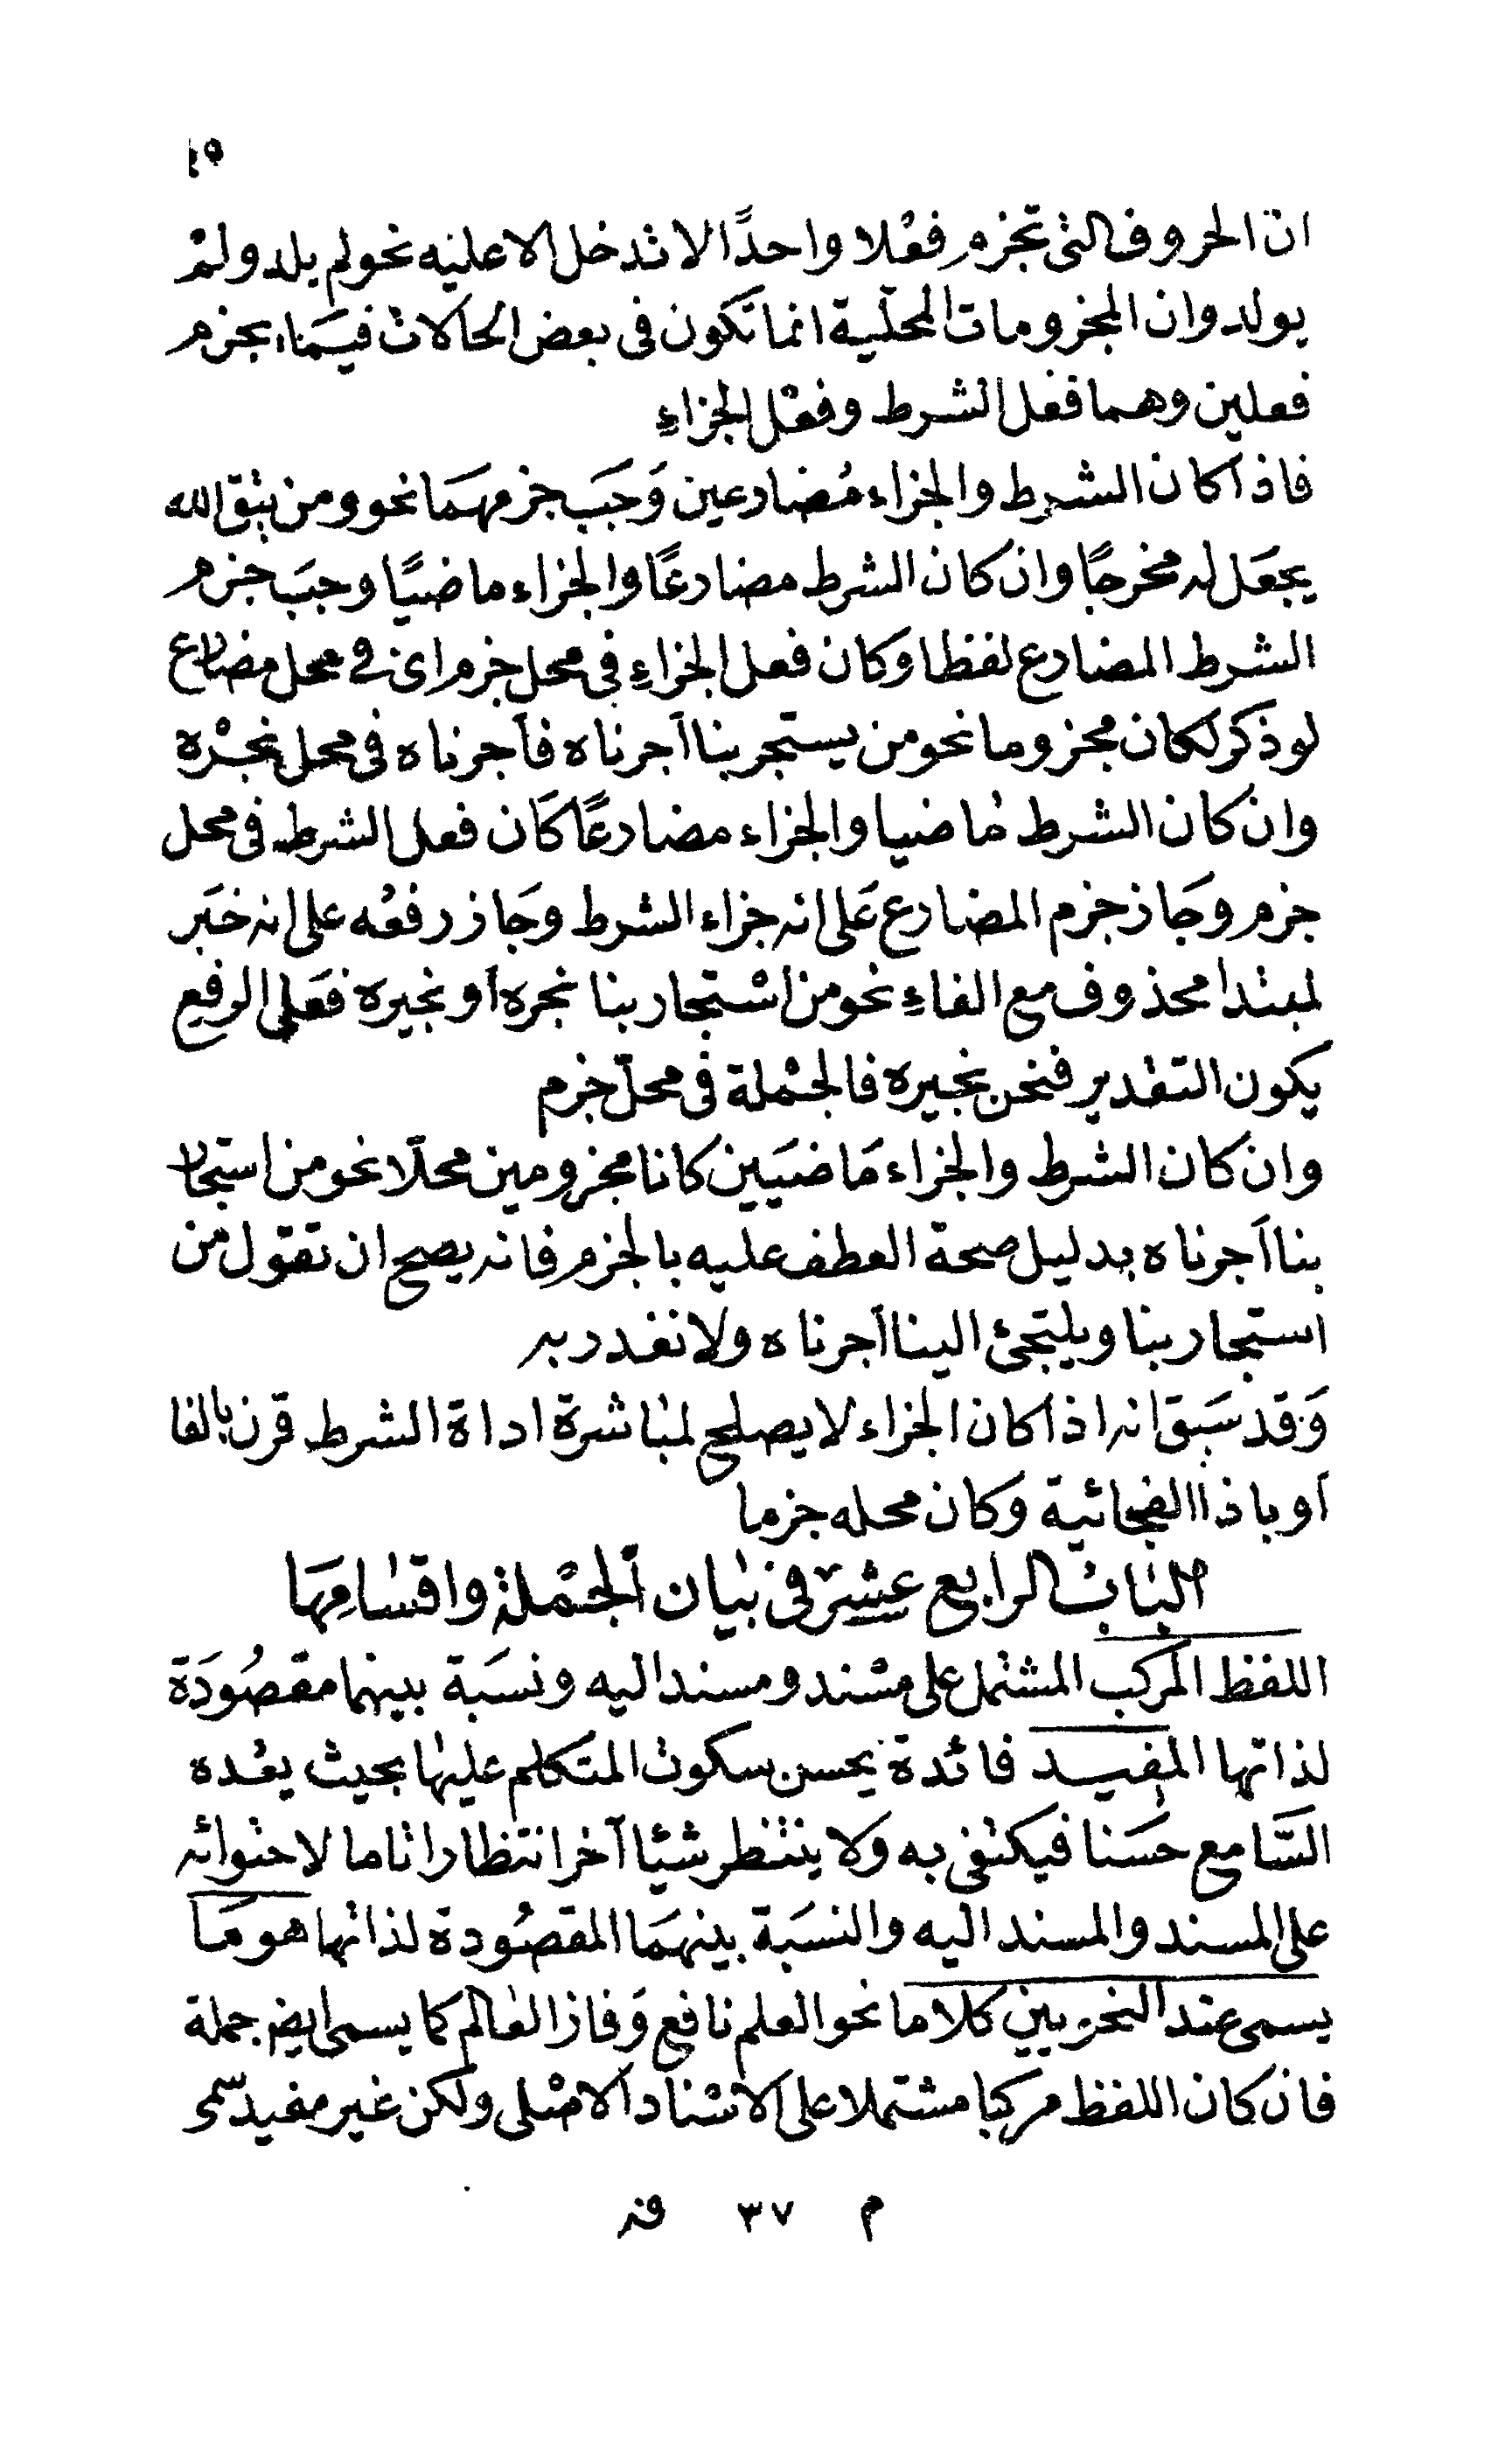 ان الحروف التى تجزم فعْلا واحدًا لا تدخل الا عليه نحو لم يلد ولمْ
يولد وان المجزومات المحلّية انما تكون فى بعض الحالات فيمَا يجزم
فعلين وهما فعل الشرط وفعْل الجزاءِ
فاذا كان الشرط والجزاء مُضارعين وَجَبَ جزمهمَا نحو ومن يتق الله
يجعَل له مخرجًا وان كان الشرط مضارعًا والجزاء ماضيًا وجبَ جزم
الشرط المضارع لفظا وكان فعل الجزاءِ فى محل جزم اى فى محل مضارع
لو ذكر لكان مجزوما نحو من يستجر بنا آجرناه فآجرناه فى محل نجْره
وان كان الشرط مَاضيا والجزاء مضارعًا كَان فعل الشرط فى محل
جزم وجَاز جزم المضارع عَلى انه جزاء الشرط وجَاز رفعُه على انه خبَر
لمبتدا محذوف مع الفاءِ نحو من اسْتجار بنا نجره أو نجيره فعَلى الرفع
يكون التقدير فنحن نجيره فالجمْلة فى محلّ جزم
وان كان الشرط والجزاء مَاضيَين كانا مجزومين محلّا نحو من استجار
بنا آجرناه بدليل صحة العطف عليه بالجزم فانه يصح ان تقول من
استجار بنا ويلتجئ الينا آجرناه ولا نغدر به
وَقد سَبق انه اذا كان الجزاء لا يصلح لمباشرة اداة الشرط قرن بالفا
أو باذا الفجائية وكان محله جزما
الباب الرابع عشر فى بيان الجمْلة واقسامِهَا
اللفظ المركب المشتمل على مسْند ومسند اليه ونسَبة بينهما مقصُودَة
لذاتها المفيد فائدة يحسن سكوت المتكلم عليها بحيث يعُده
السَّامع حسَنا فيكتفى به ولا ينتظر شيئا آخر انتظارا تاما لاحتوائه
على المسند والمسند اليه والنسَبة بينهمَا المقصُودة لذاتها هو مَا
يسمى عند النحويين كلاما نحو العلم نافع وَفاز العالم كما يسمى ايضا جملة
فان كان اللفظ مركبا مشتملا على الاسْناد الاصْلى ولكن غير مفيد سمى
م ٣٧ فتر